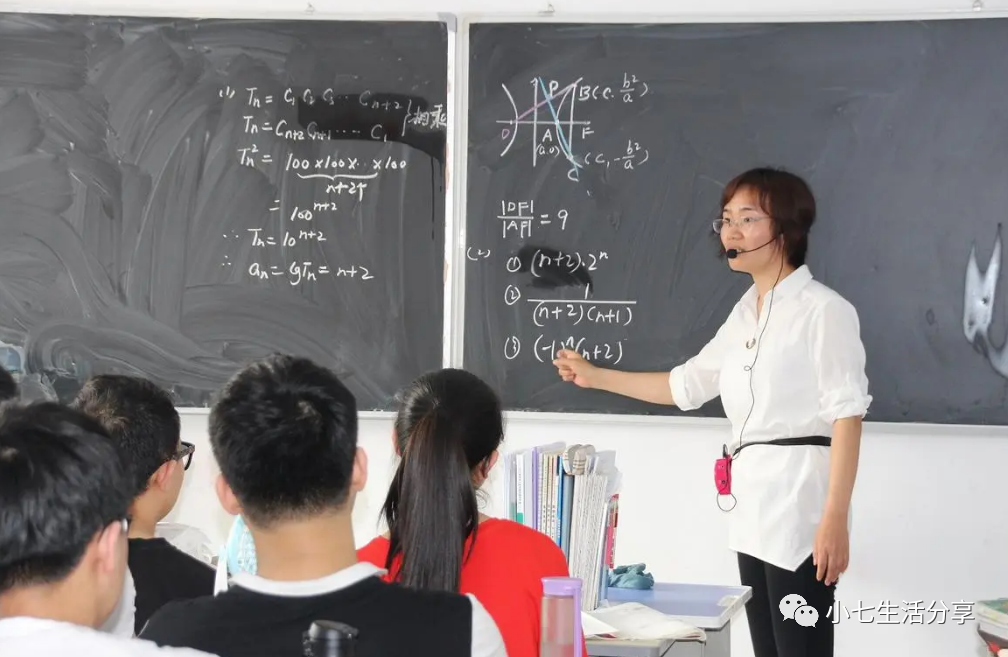 (1) Tn = C1 C2 C3 ... Cn+2 } 相乘
Tn = Cn+2 Cn+1 ... C1
Tn² = 100×100×...×100
n+2个
= 100ⁿ⁺²
∴ Tn = 10ⁿ⁺²
∴ an = lgTn = n+2
P B(c, b²/a)
D A F
(a,0)
(c, -b²/a)
C
|DF|/|AF| = 9
(2) ① (n+2)·2ⁿ
② 1/(n+2)(n+1)
③ (-1)ⁿ(n+2)
小七生活分享